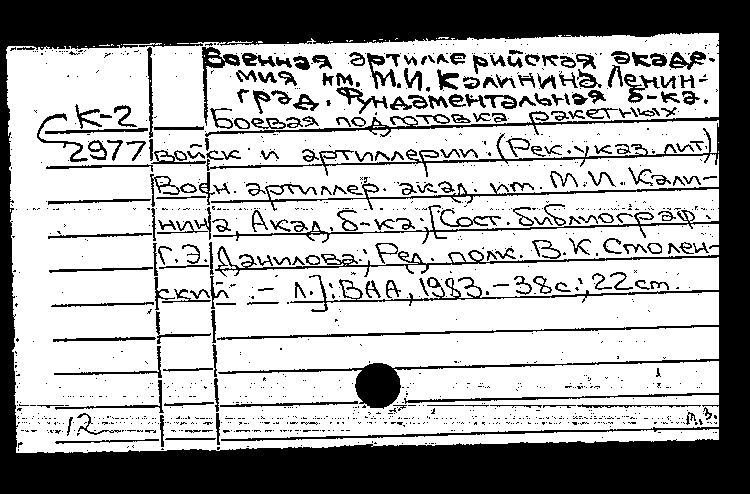 Военная артиллерийская акаде-
мия им. М.И. Калинина. Ленин-
град. Фундаментальная б-ка.
К-2
2977
Боевая подготовка ракетных
войск и артиллерии: (Рек. указ. лит.)
Воен. артиллер. акад. им. М.И. Кали-
нина, Акад. б-ка; [Сост. библиограф.
Г.Э. Данилова; Ред. полк. В.К. Столен-
ский. - Л.]: ВАА, 1983. - 38с.; 22 см.
12
м.з.